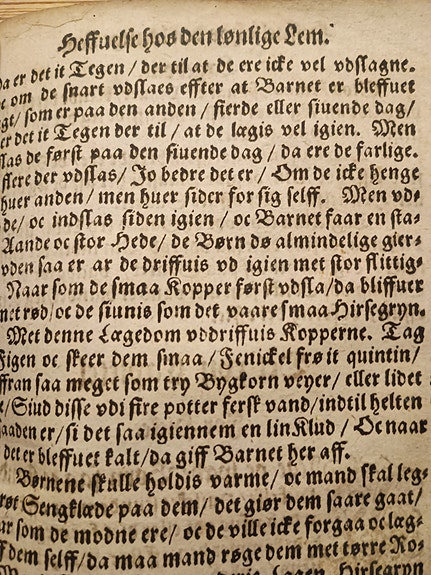 Heffuelse hos den lønlige Lem.
da er det it Tegen / der til at de ere icke vel vdslagne.
oc om de snart vdslaes effter at Barnet er bleffuet
som er paa den anden / fierde eller siuende dag /
er det it Tegen der til / at de lægis vel igien. Men
slas de først paa den siuende dag / da ere de farlige.
flere der vdslas / Jo bedre det er / Om de icke henge
huer anden / men huer sider for sig self. Men vd⸗
de / oc indslas siden igien / oc Barnet faar en sta⸗
Aande oc stor Hede / de Børn dø almindelige gier⸗
vden saa er ar de driffuis vd igien met stor flittig⸗
Naar som de smaa Kopper først vdsla / da bliffuer
met rød / oc de siunis som det vaare smaa Hirsegryn.
Met denne Lægedom vddriffuis Kopperne. Tag
Figen oc skeer dem smaa / Fenickel frø it quintin /
saa meget som try Bygkorn veyer / eller lidet
Siud disse vdi fire potter fersk vand / indtil helten
er / si det saa igiennem en linKlud / Oc naar
det er bleffuet kalt / da giff Barnet her aff.
Børnene skulle holdis varme / oc mand skal leg⸗
Sengklæde paa dem / det giør dem saare gaat /
som de modne ere / oc de ville icke forgaa oc læg⸗
dem self / da maa mand røge dem met tørre Ro⸗
Lagen Hirsegryn